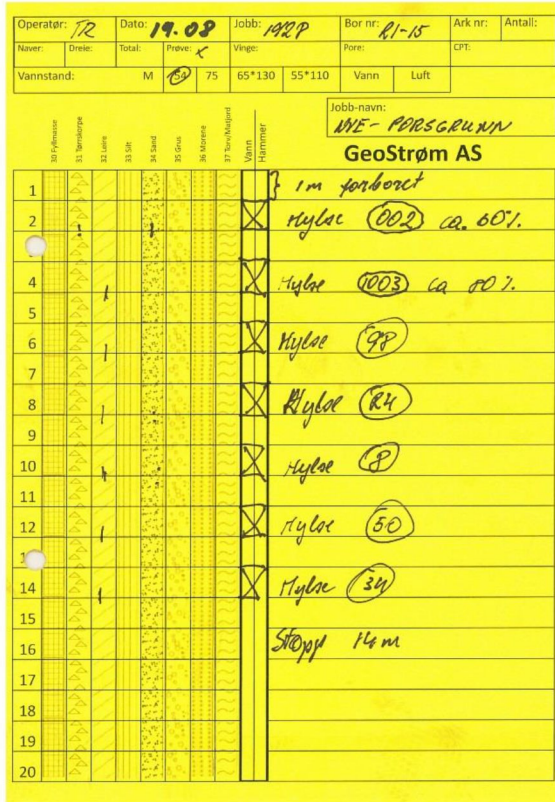 Operatør: TR Dato: 19.08 Jobb: 1922P Bor nr: R1-15 Ark nr: Antall:
Naver: Dreie: Total: Prøve: X Vinge: Pore: CPT:
Vannstand: M 54 75 65*130 55*110 Vann Luft
Jobb-navn:
NYE-PORSGRUNN
30 Fyllmasse 31 Tørrskorpe 32 Leire 33 Silt 34 Sand 35 Grus 36 Morene 37 Torv/Matjord Vann Hammer
GeoStrøm AS
1 } 1m forboret
2 Hylse 002 ca. 60%
4 Hylse 1003 ca 80%
5
6 Hylse 98
7
8 Hylse R4
9
10 Hylse 8
11
12 Hylse 50
14 Hylse 34
15
16 Stopp 14m
17
18
19
20